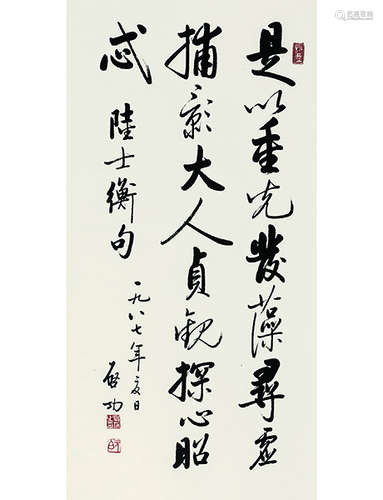 是以重光發藻尋虛
捕影大人貞觀探心昭
忒
陸士衡句
一九八七年夏日
啓功